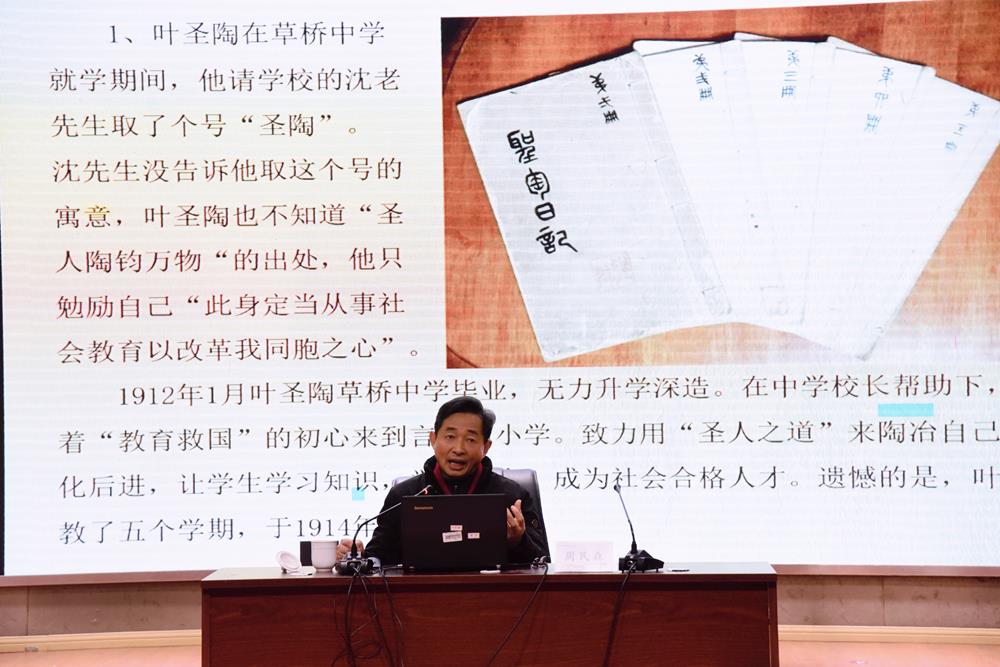 1、叶圣陶在草桥中学
就学期间，他请学校的沈老
先生取了个号“圣陶”。
沈先生没告诉他取这个号的
寓意，叶圣陶也不知道“圣
人陶钧万物“的出处，他只
勉励自己“此身定当从事社
会教育以改革我同胞之心”。
聖匋日記
1912年1月叶圣陶草桥中学毕业，无力升学深造。在中学校长帮助下，
着“教育救国”的初心来到言 小学。致力用“圣人之道”来陶冶自己
化后进，让学生学习知识， 成为社会合格人才。遗憾的是，叶
教了五个学期，于1914年
lenovo
周民众